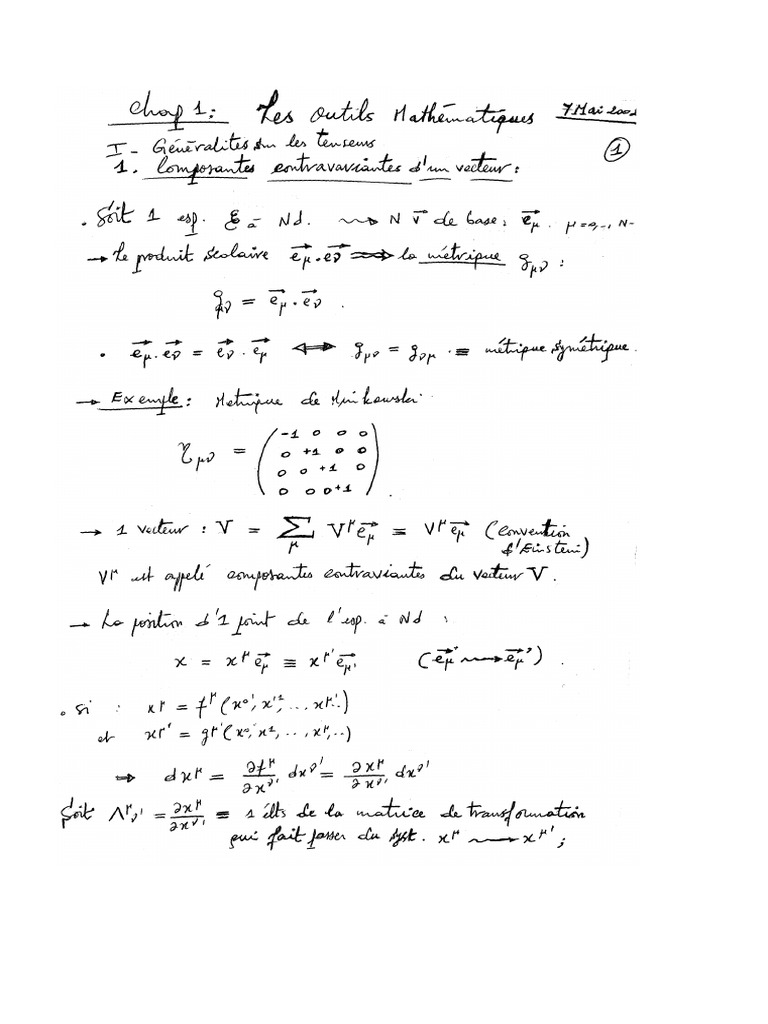 Chap 1: Les Outils Mathématiques 7 Mai 200
I - Généralités sur les tenseurs ①
1. Composantes contravariantes d'un vecteur :
. Soit 1 esp. ℰ à Nd. ⟿ N v⃗ de base: e⃗_μ. μ=0,..,N-
→ Le produit scolaire e⃗_μ.e⃗_ν ⟹ la métrique g_μν :
g_μν = e⃗_μ.e⃗_ν .
. e⃗_μ.e⃗_ν = e⃗_ν.e⃗_μ ⟺ g_μν = g_νμ . ≡ métrique symétrique.
→ Exemple : Metrique de Minkowski.
η_μν = ( -1 0 0 0
0 +1 0 0
0 0 +1 0
0 0 0 +1 ) .
→ 1 vecteur : V = Σ_μ V^μ e⃗_μ ≡ V^μ e⃗_μ (Convention
d'Einstein)
V^μ est appelé composantes contraviantes du vecteur V.
→ La position d'1 point de l'esp. à Nd :
x = x^μ e⃗_μ ≡ x^μ' e⃗_μ' (e⃗_μ ⟿ e⃗_μ') .
. si : x^μ = f^μ(x^0', x'^1, ..., x^μ'..)
et x^μ' = g^μ'(x^0, x^1, .., x^μ, ..)
⇒ dx^μ = ∂f^μ/∂x^ν' dx^ν' = ∂x^μ/∂x^ν' dx^ν'
Soit Λ^μ_ν' = ∂x^μ/∂x^ν' ≡ 1 élts de la matrice de transformation
qui fait passer du syst. x^μ ⟶ x^μ' ;